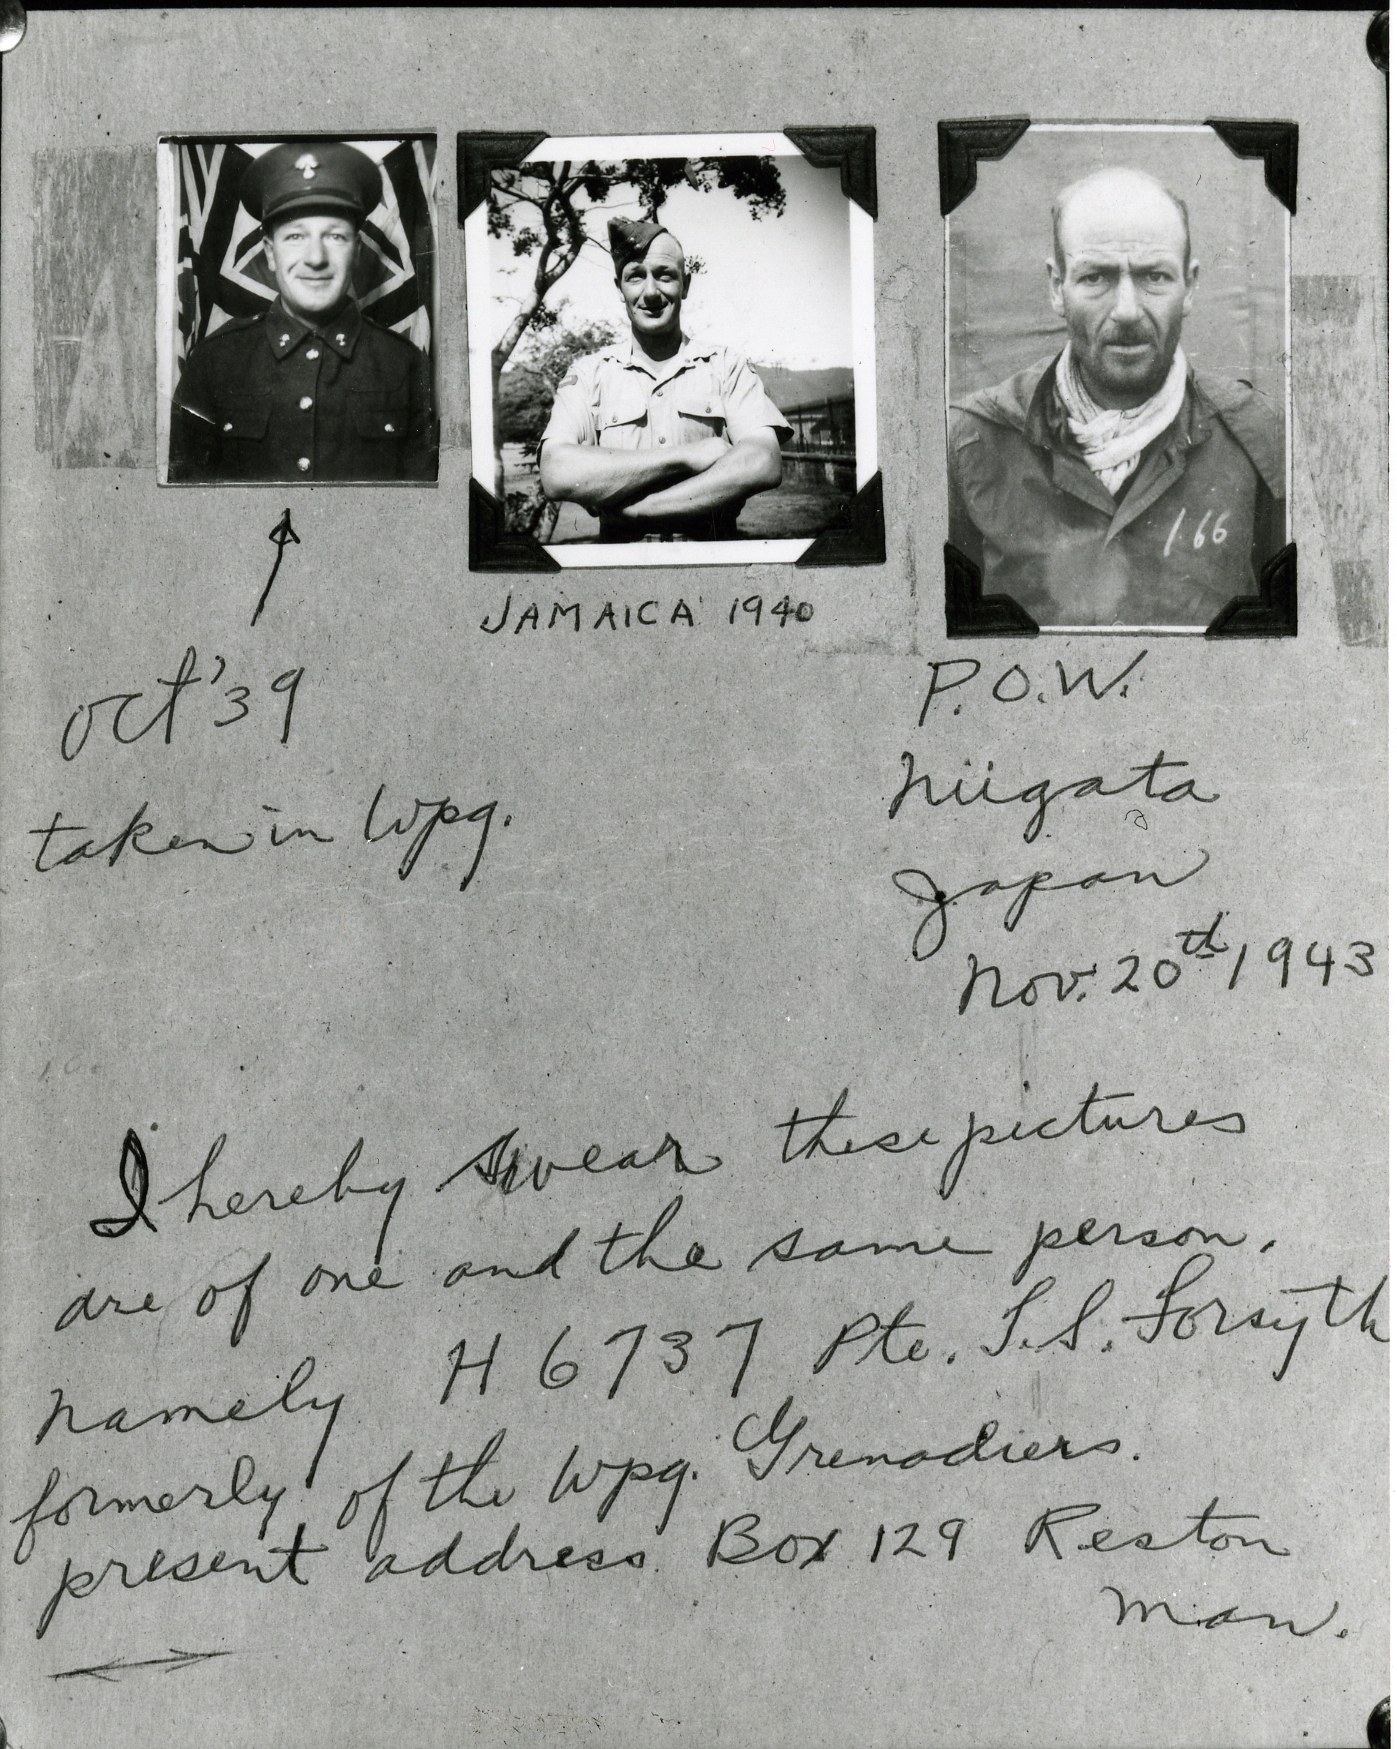 166
Oct '39
taken in Wpg.
JAMAICA 1940
P.O.W.
Niigata
Japan
Nov. 20th 1943
I hereby swear these pictures
are of one and the same person.
namely H 6737 Pte. S.S. Forsyth
formerly of the Wpg. Grenadiers.
present address Box 129 Reston
Man.